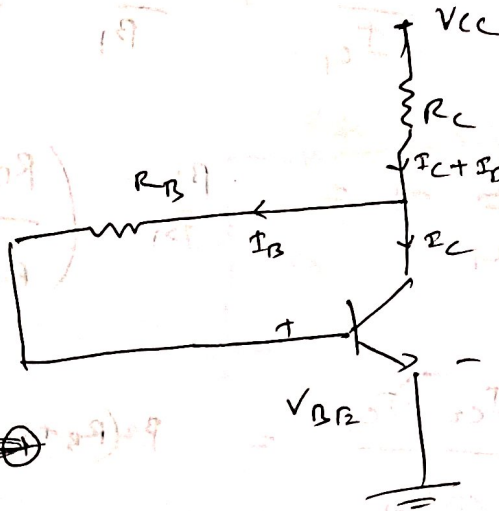 VCC
RC
IC + IB
RB
IB
IC
+
-
VBE